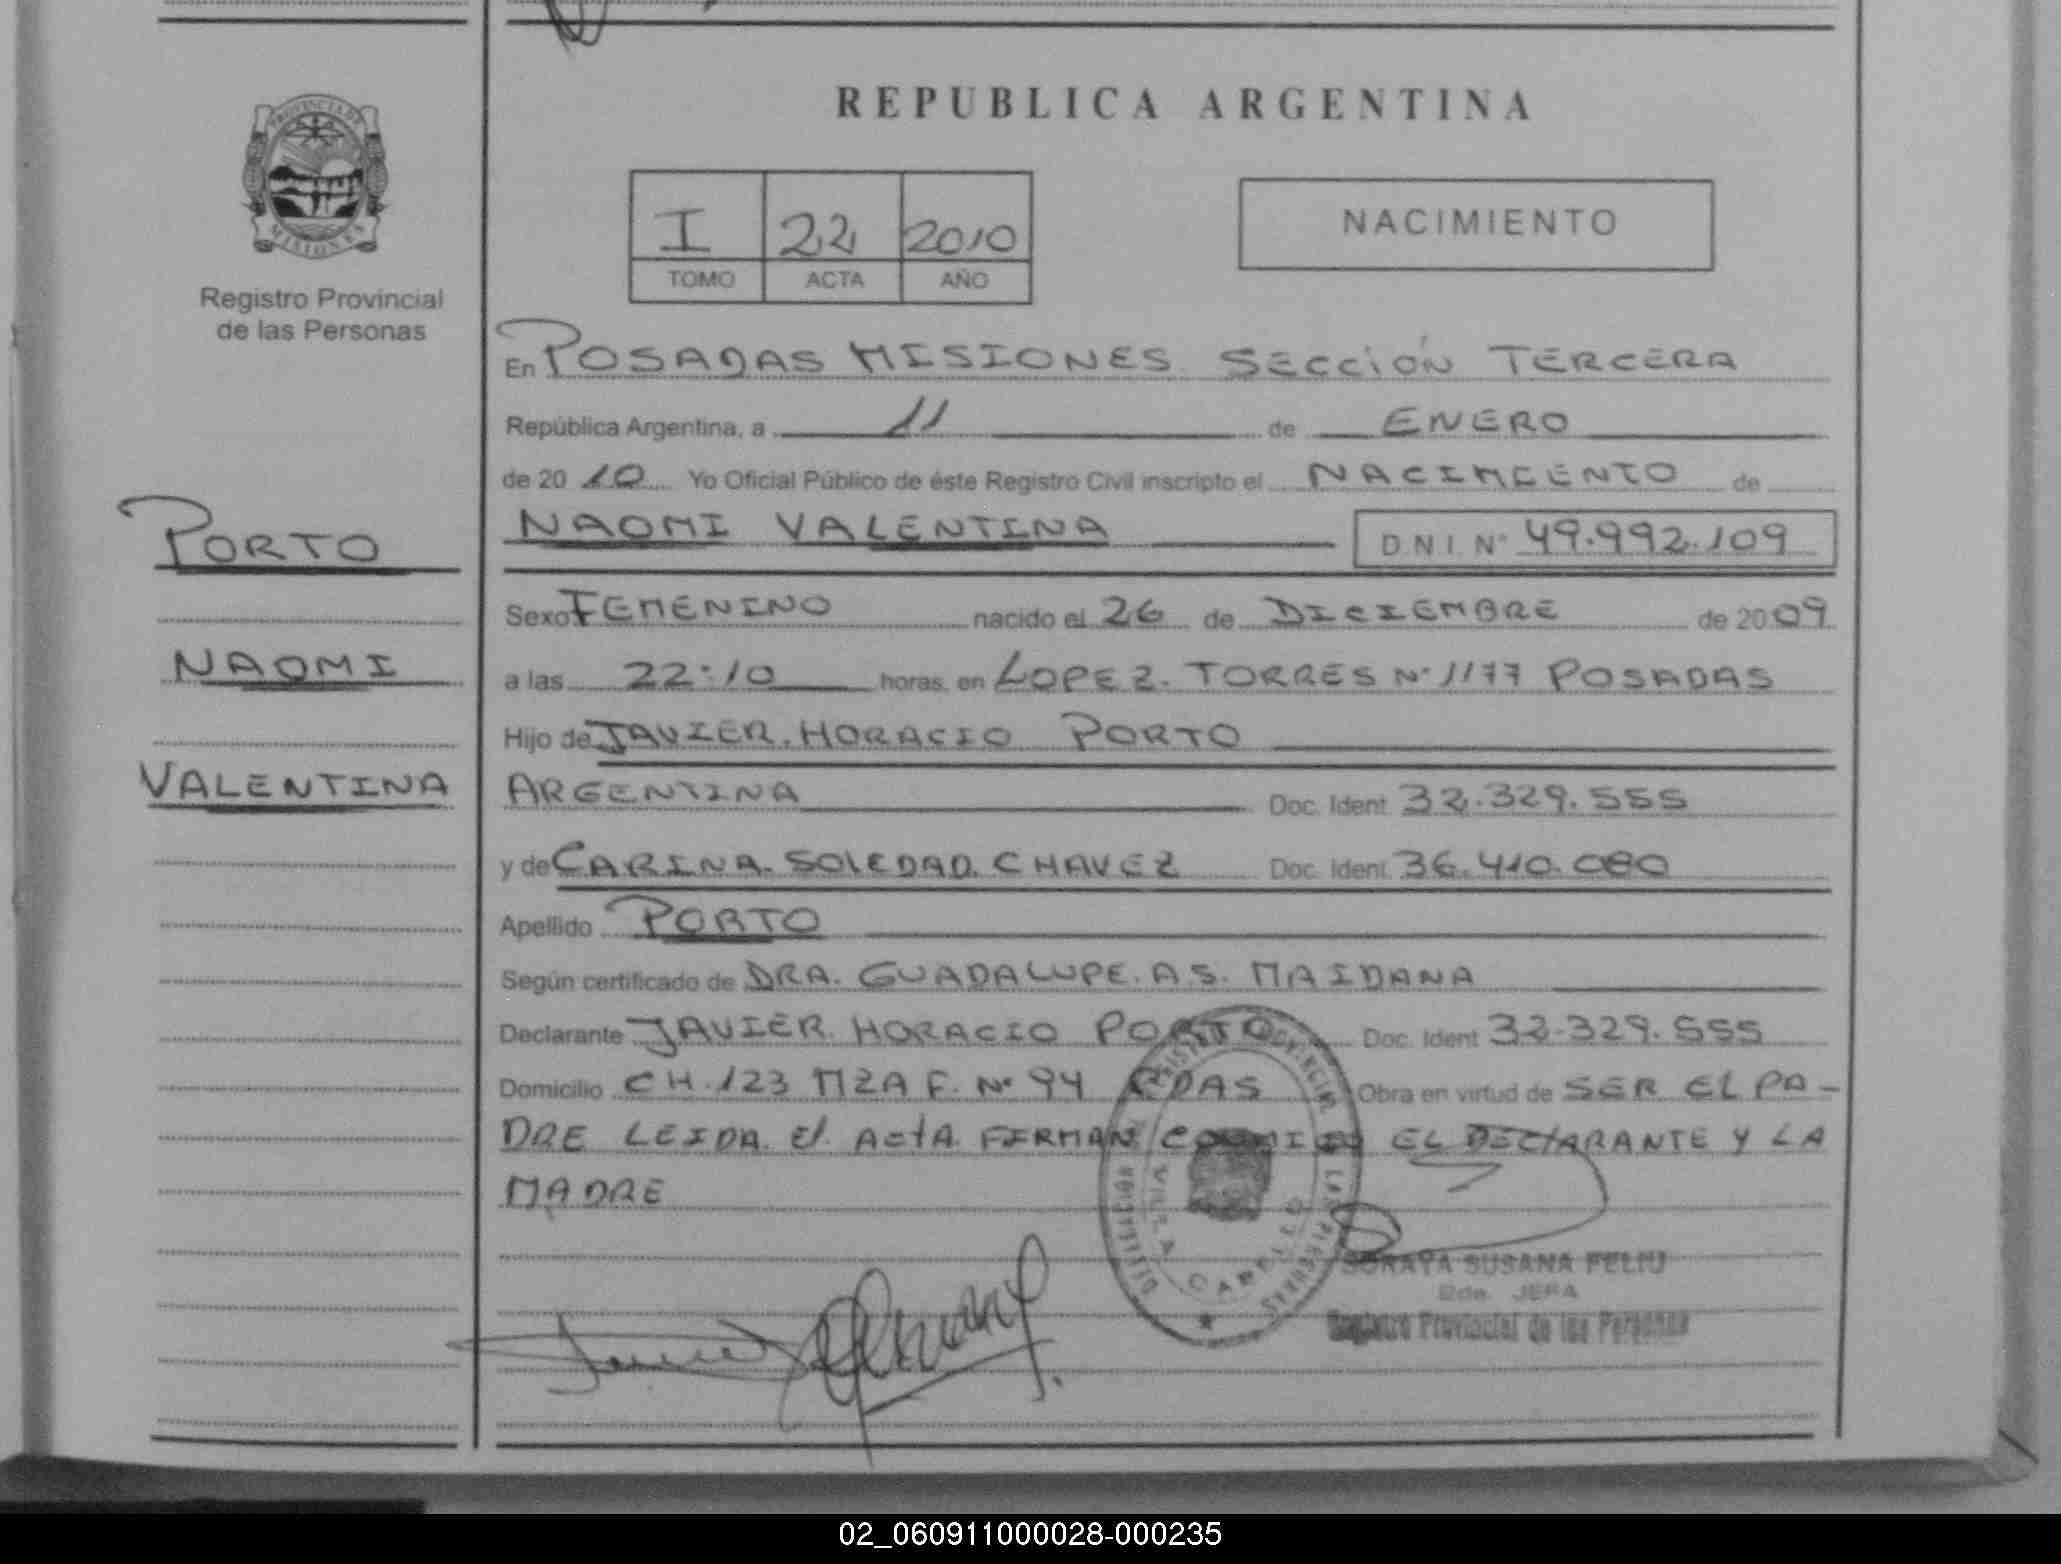 REPUBLICA ARGENTINA
PROVINCIA DE
MISIONES
Registro Provincial
de las Personas
I 22 2010
TOMO ACTA AÑO
NACIMIENTO
En POSADAS MISIONES SECCIÓN TERCERA
República Argentina, a 11 de ENERO
de 20 10 Yo Oficial Público de éste Registro Civil inscripto el NACIMIENTO de
PORTO
NAOMI VALENTINA D.N.I. N° 49.992.109
Sexo FEMENINO nacido el 26 de DICIEMBRE de 2009
NAOMI
a las 22:10 horas, en LOPEZ. TORRES N° 1177 POSADAS
Hijo de JAVIER. HORACIO PORTO
VALENTINA
ARGENTINA Doc. Ident. 32.329.555
y de CARINA. SOLEDAD. CHAVEZ Doc. Ident. 36.410.080
Apellido PORTO
Según certificado de DRA. GUADALUPE. A.S. MAIDANA
Declarante JAVIER. HORACIO PORTO Doc. Ident 32.329.555
Domicilio CH. 123 MZA F. N° 94 PDAS Obra en virtud de SER EL PA-
DRE LEIDA. El ACTA FIRMAN CONMIGO EL DECLARANTE Y LA
MADRE
SORAYA SUSANA FELIU
2da. JEFA
Registro Provincial de las Personas
02_060911000028-000235